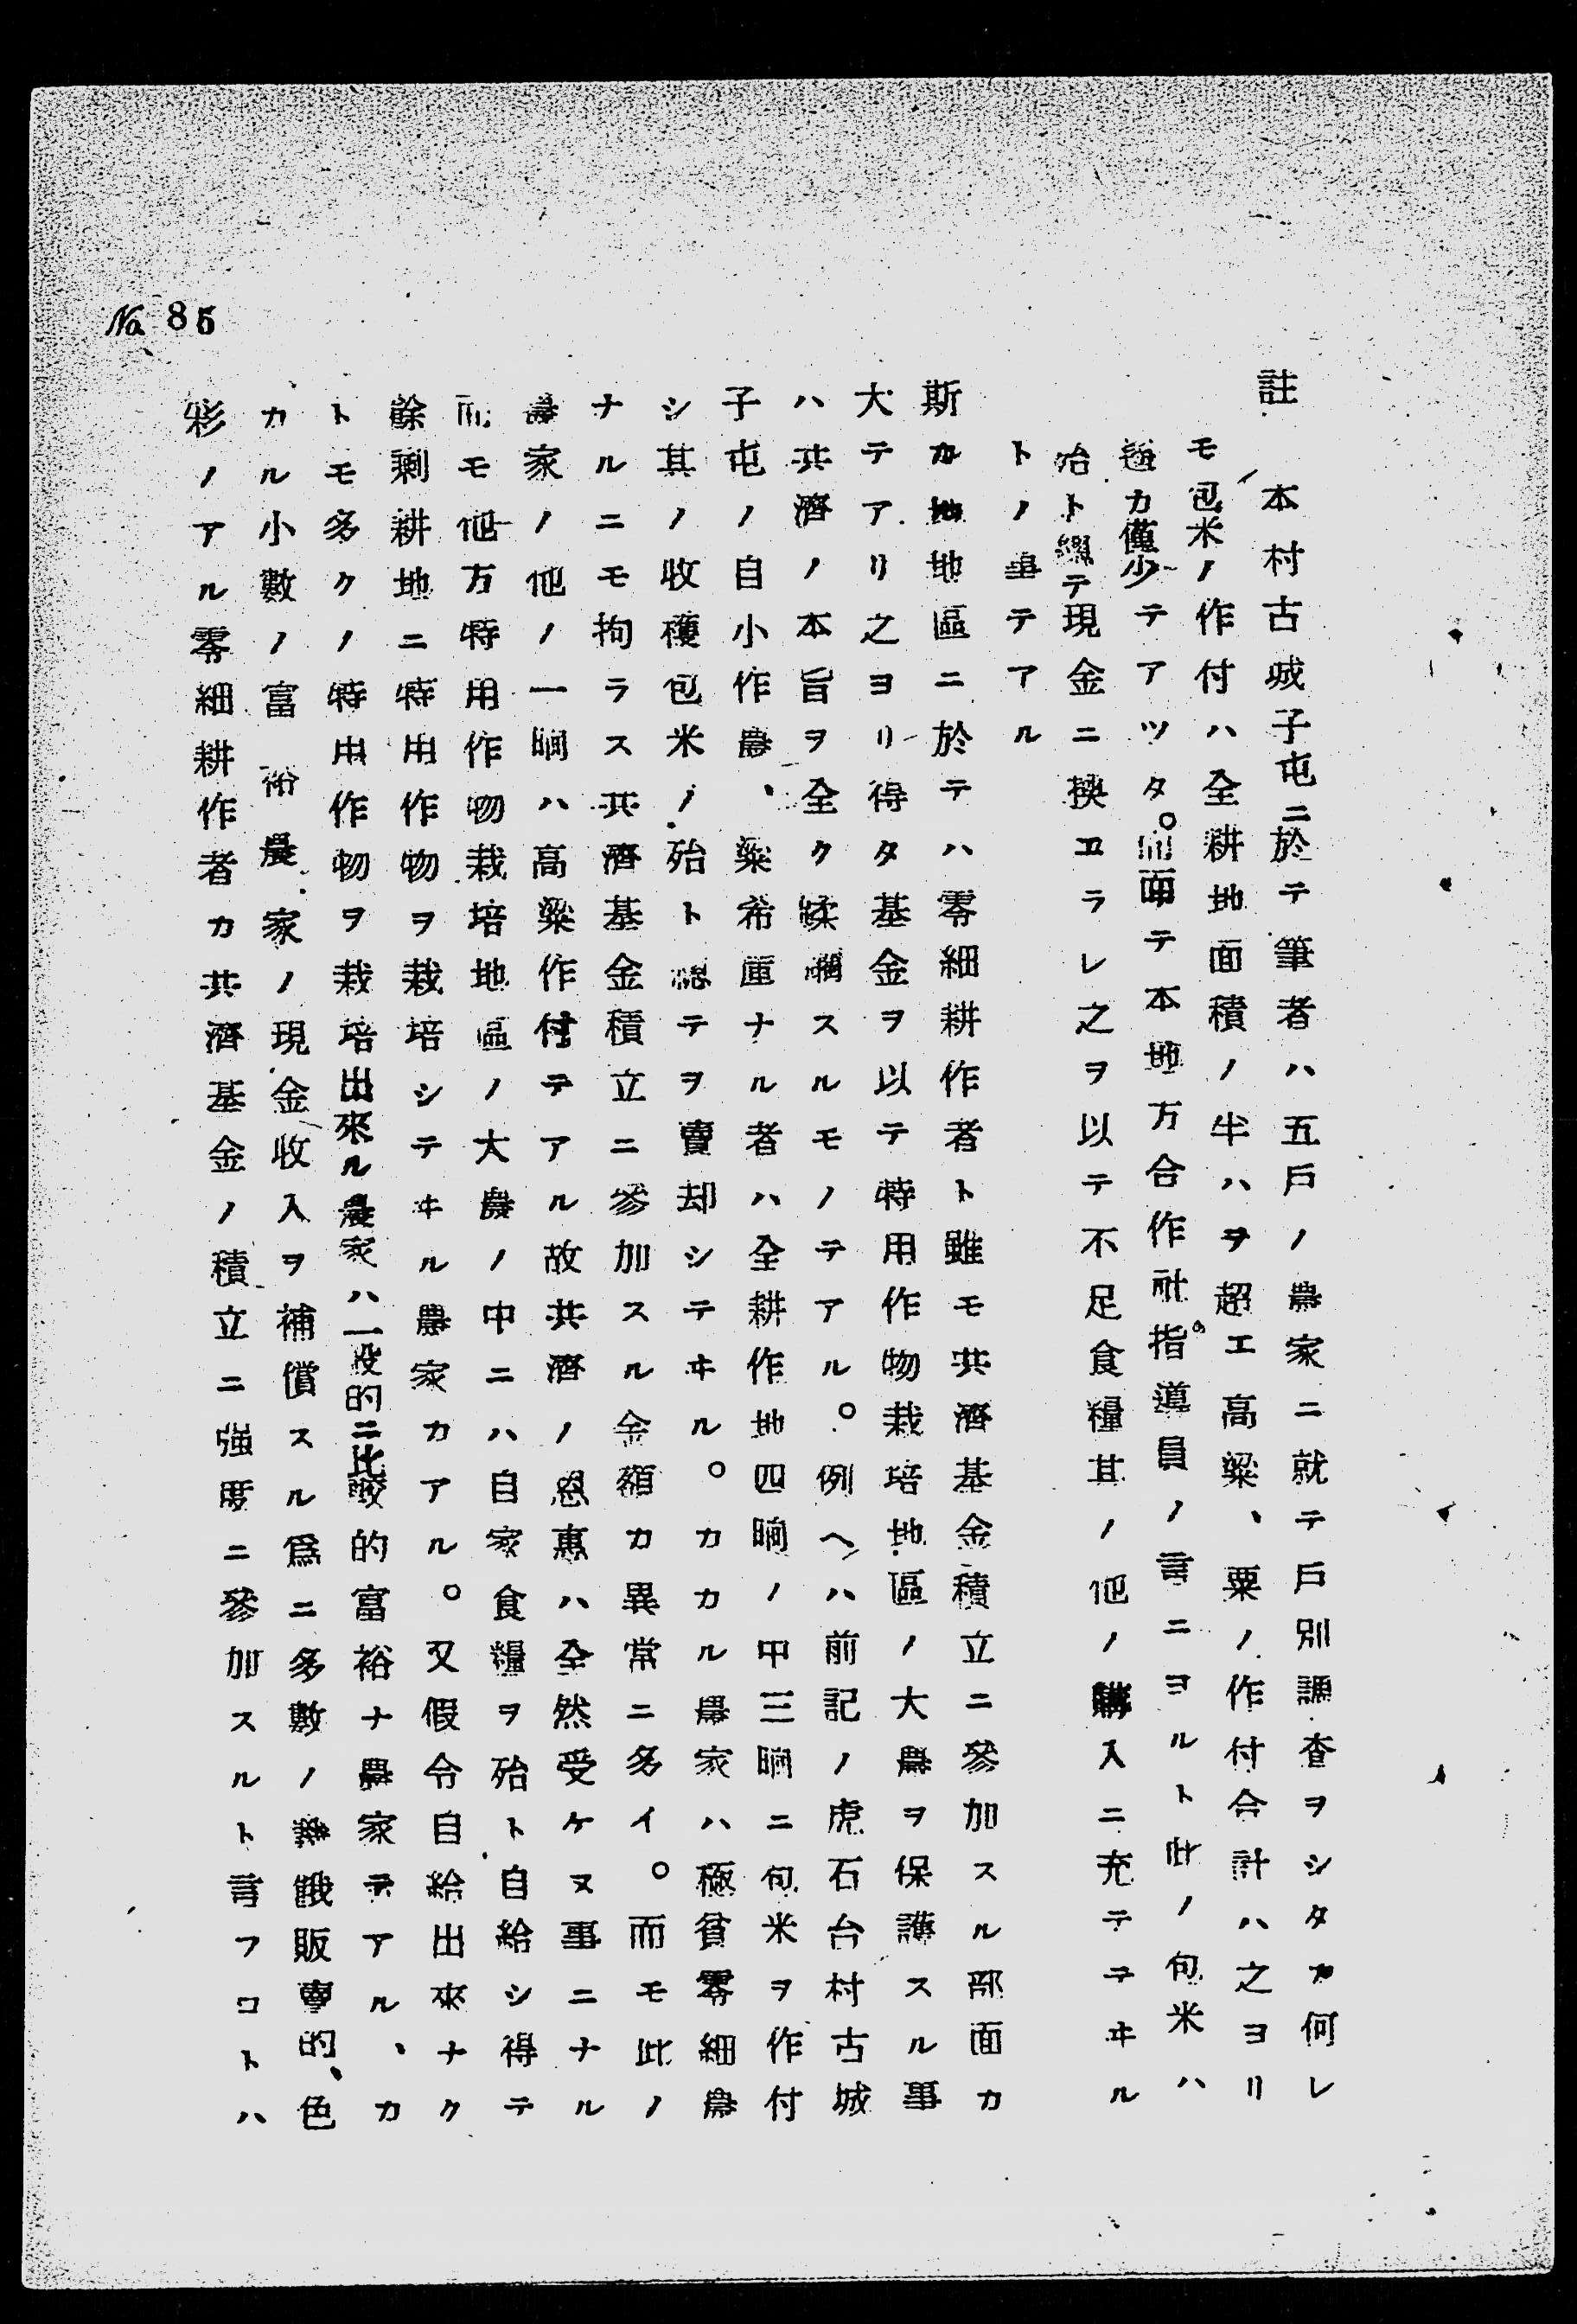 註 本村古城子屯ニ於テ筆者ハ五戶ノ農家ニ就テ戶別調査ヲシタカ何レ
モ包米ノ作付ハ全耕地面積ノ半ハヲ超エ高粱、粟ノ作付合計ハ之ヨリ
遙カ僅少テアツタ。而テ本地方合作社指導員ノ言ニヨルト此ノ包米ハ
殆ト總テ現金ニ換ヱラレ之ヲ以テ不足食糧其ノ他ノ購入ニ充テテヰル
トノ事テアル
斯カル地區ニ於テハ零細耕作者ト雖モ共濟基金積立ニ參加スル部面カ
大テアリ之ヨリ得タ基金ヲ以テ特用作物栽培地區ノ大農ヲ保護スル事
ハ共濟ノ本旨ヲ全ク蹂躙スルモノテアル。例ヘハ前記ノ虎石台村古城
子屯ノ自小作農、梁希厘ナル者ハ全耕作地四晌ノ中三晌ニ包米ヲ作付
シ其ノ收穫包米ノ殆ト總テヲ賣却シテヰル。カカル農家ハ極貧零細農
ナルニモ拘ラス共濟基金積立ニ參加スル金額カ異常ニ多イ。而モ此ノ
農家ノ他ノ一晌ハ高粱作付テアル故共濟ノ恩惠ハ全然受ケヌ事ニナル
而モ他方特用作物栽培地區ノ大農ノ中ニハ自家食糧ヲ殆ト自給シ得テ
餘剩耕地ニ特用作物ヲ栽培シテヰル農家カアル。又假令自給出來ナク
トモ多クノ特用作物ヲ栽培出來ル農家ハ一般的ニ比較的富裕ナ農家テアル、カ
カル小數ノ富裕農家ノ現金收入ヲ補償スル爲ニ多數ノ饑餓販賣的、色
彩ノアル零細耕作者カ共濟基金ノ積立ニ強度ニ參加スルト言フコトハ
No. 85